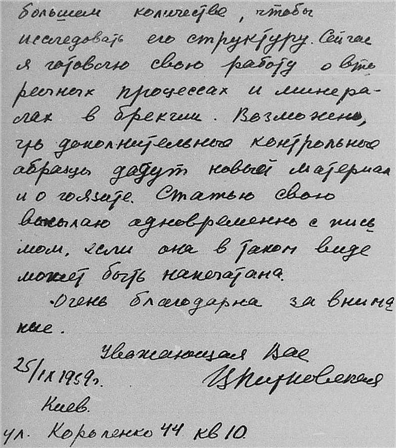 большем количестве, чтобы
исследовать его структуру. Сейчас
я готовлю свою работу о вто
ричных процессах и минера-
лах в брекчии. Возможно,
что дополнительные контрольные
образцы дадут новый материал
и о гоязите. Статью свою
высылаю одновременно с пись
мом, если она в таком виде
может быть напечатана.
Очень благодарна за внима
ние.
Уважающая Вас
25/IX 1959г.
Киев.
ул. Короленко 44 кв 10.